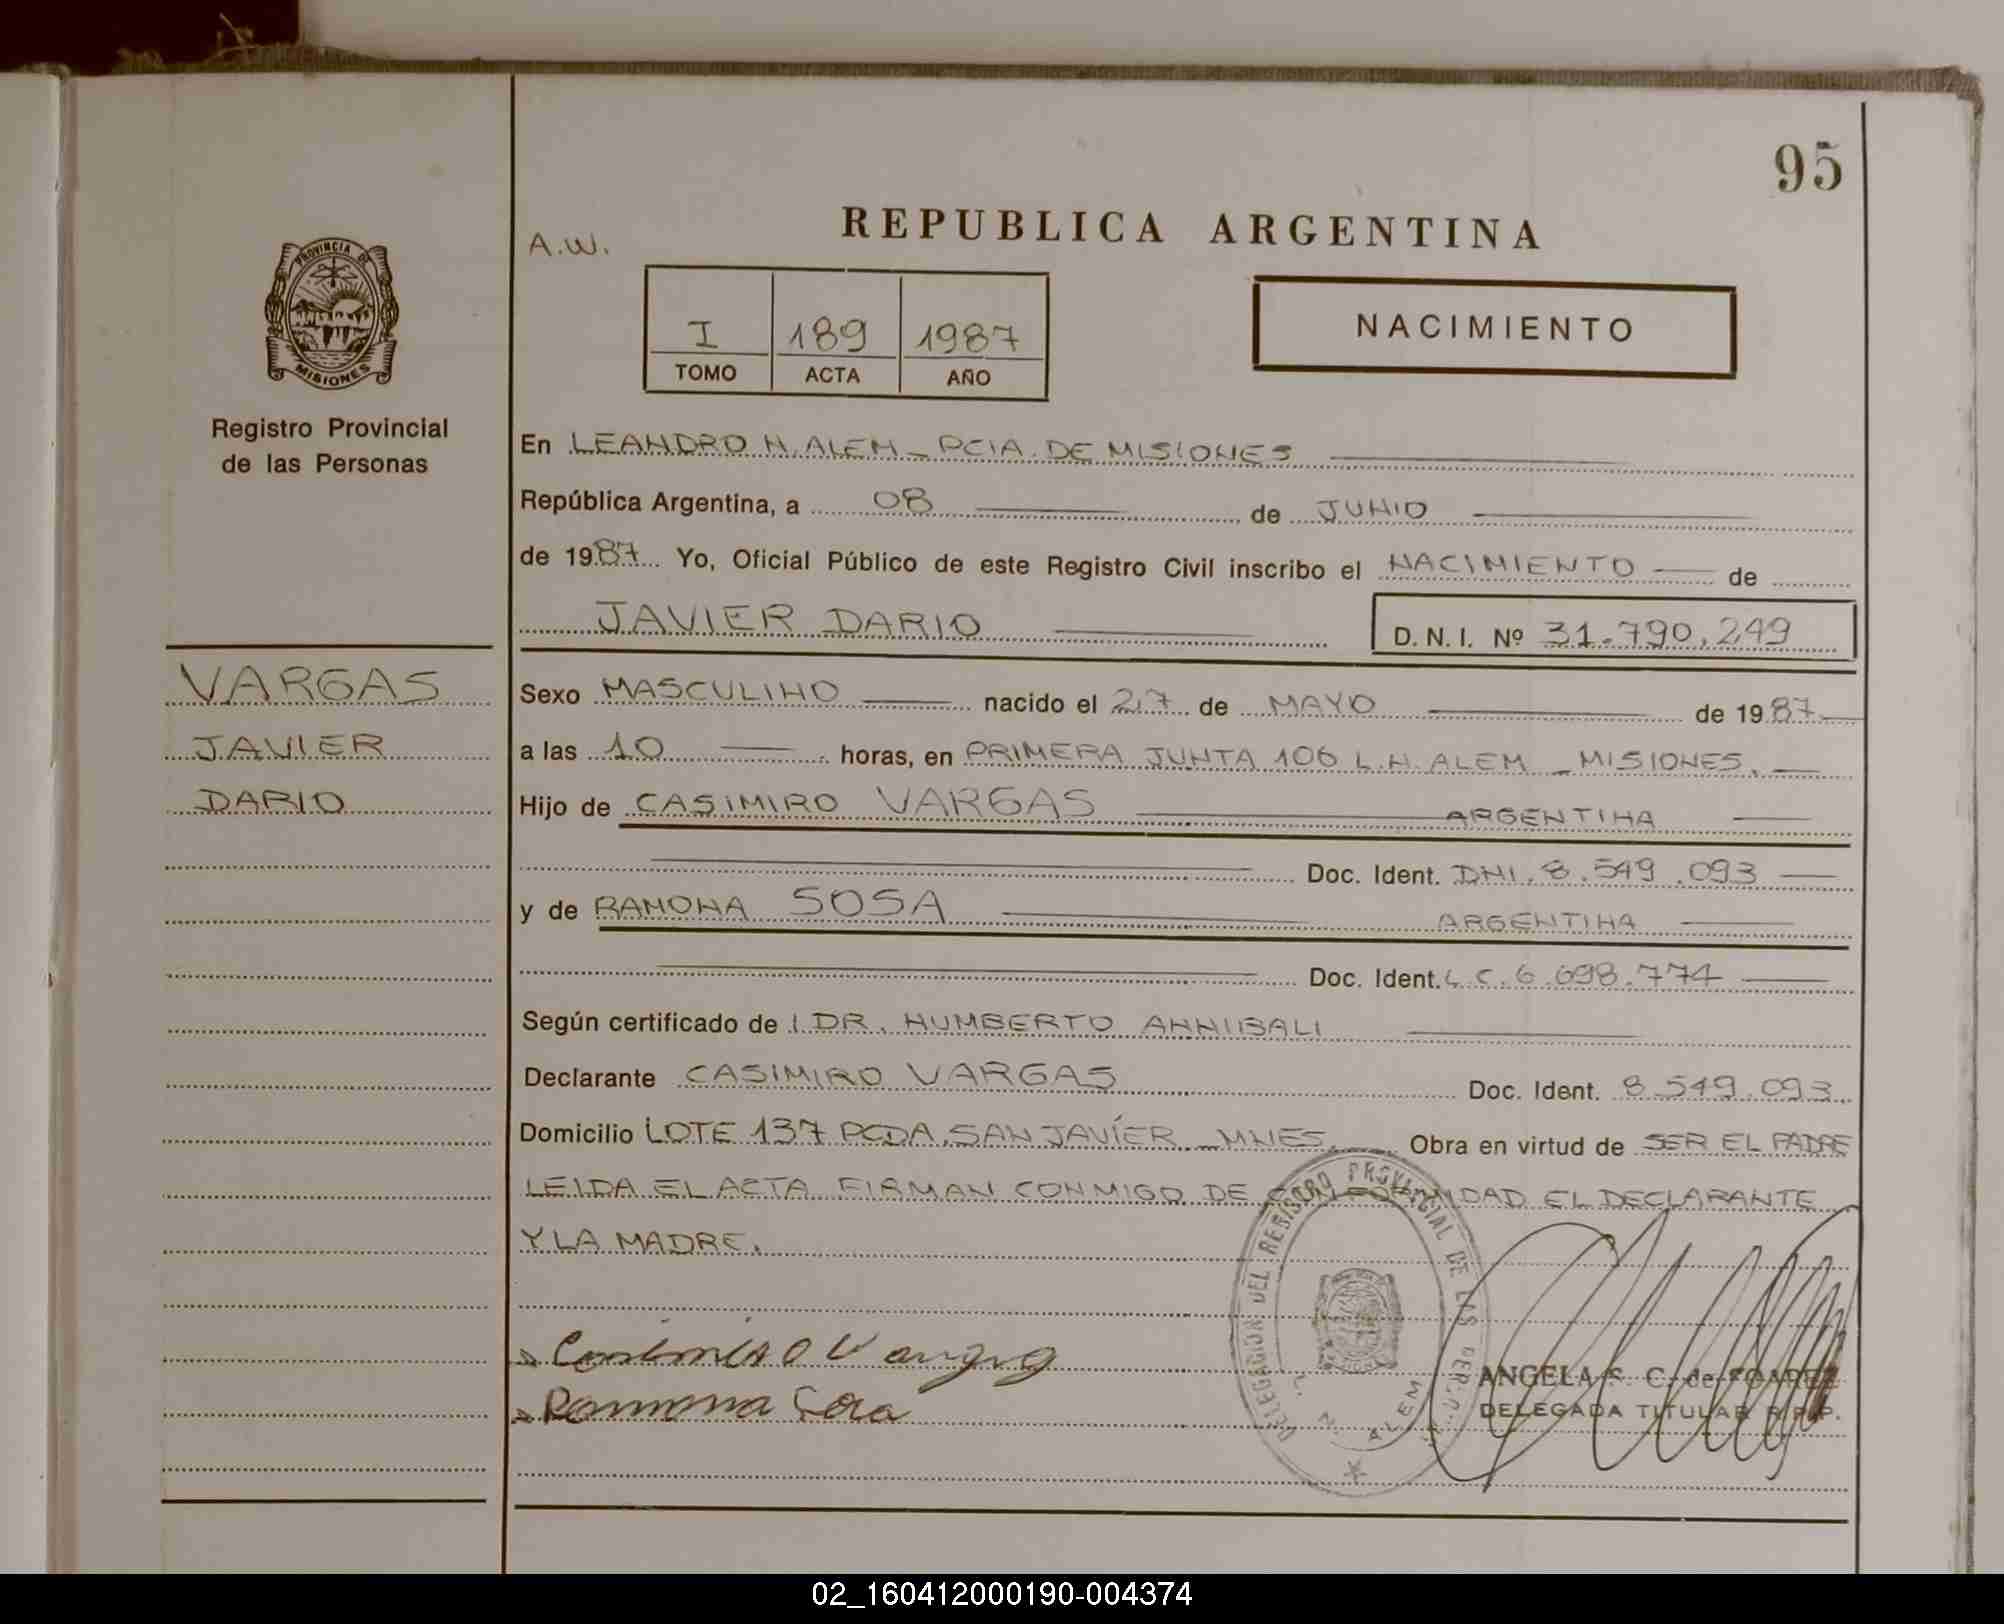 95
REPUBLICA ARGENTINA
A.W.
PROVINCIA DE
MISIONES
Registro Provincial
de las Personas
I 189 1987
TOMO ACTA AÑO
NACIMIENTO
En LEANDRO N. ALEM - PCIA. DE MISIONES
República Argentina, a 08 de JUNIO
de 1987 Yo, Oficial Público de este Registro Civil inscribo el NACIMIENTO de
JAVIER DARIO D. N. I. Nº 31.790.249
VARGAS
JAVIER
DARIO
Sexo MASCULINO nacido el 27 de MAYO de 1987
a las 10 horas, en PRIMERA JUNTA 106 L.N. ALEM - MISIONES.
Hijo de CASIMIRO VARGAS ARGENTINA
Doc. Ident. DNI. 8.549.093
y de RAMONA SOSA ARGENTINA
Doc. Ident. L.C. 6.698.774
Según certificado de l DR. HUMBERTO ANNIBALI
Declarante CASIMIRO VARGAS Doc. Ident. 8.549.093.
Domicilio LOTE 137 PCDA. SAN JAVÍER - MNES. Obra en virtud de SER EL PADRE
LEIDA EL ACTA FIRMAN CONMIGO DE CONFORMIDAD EL DECLARANTE
Y LA MADRE.
DELEGACION DEL REGISTRO PROVINCIAL DE LAS PERSONAS
L. N. ALEM
Casimiro Vargas
Ramona Sosa
ANGELA S. C. de SOAREZ
DELEGADA TITULAR R.P.P.
02_160412000190-004374